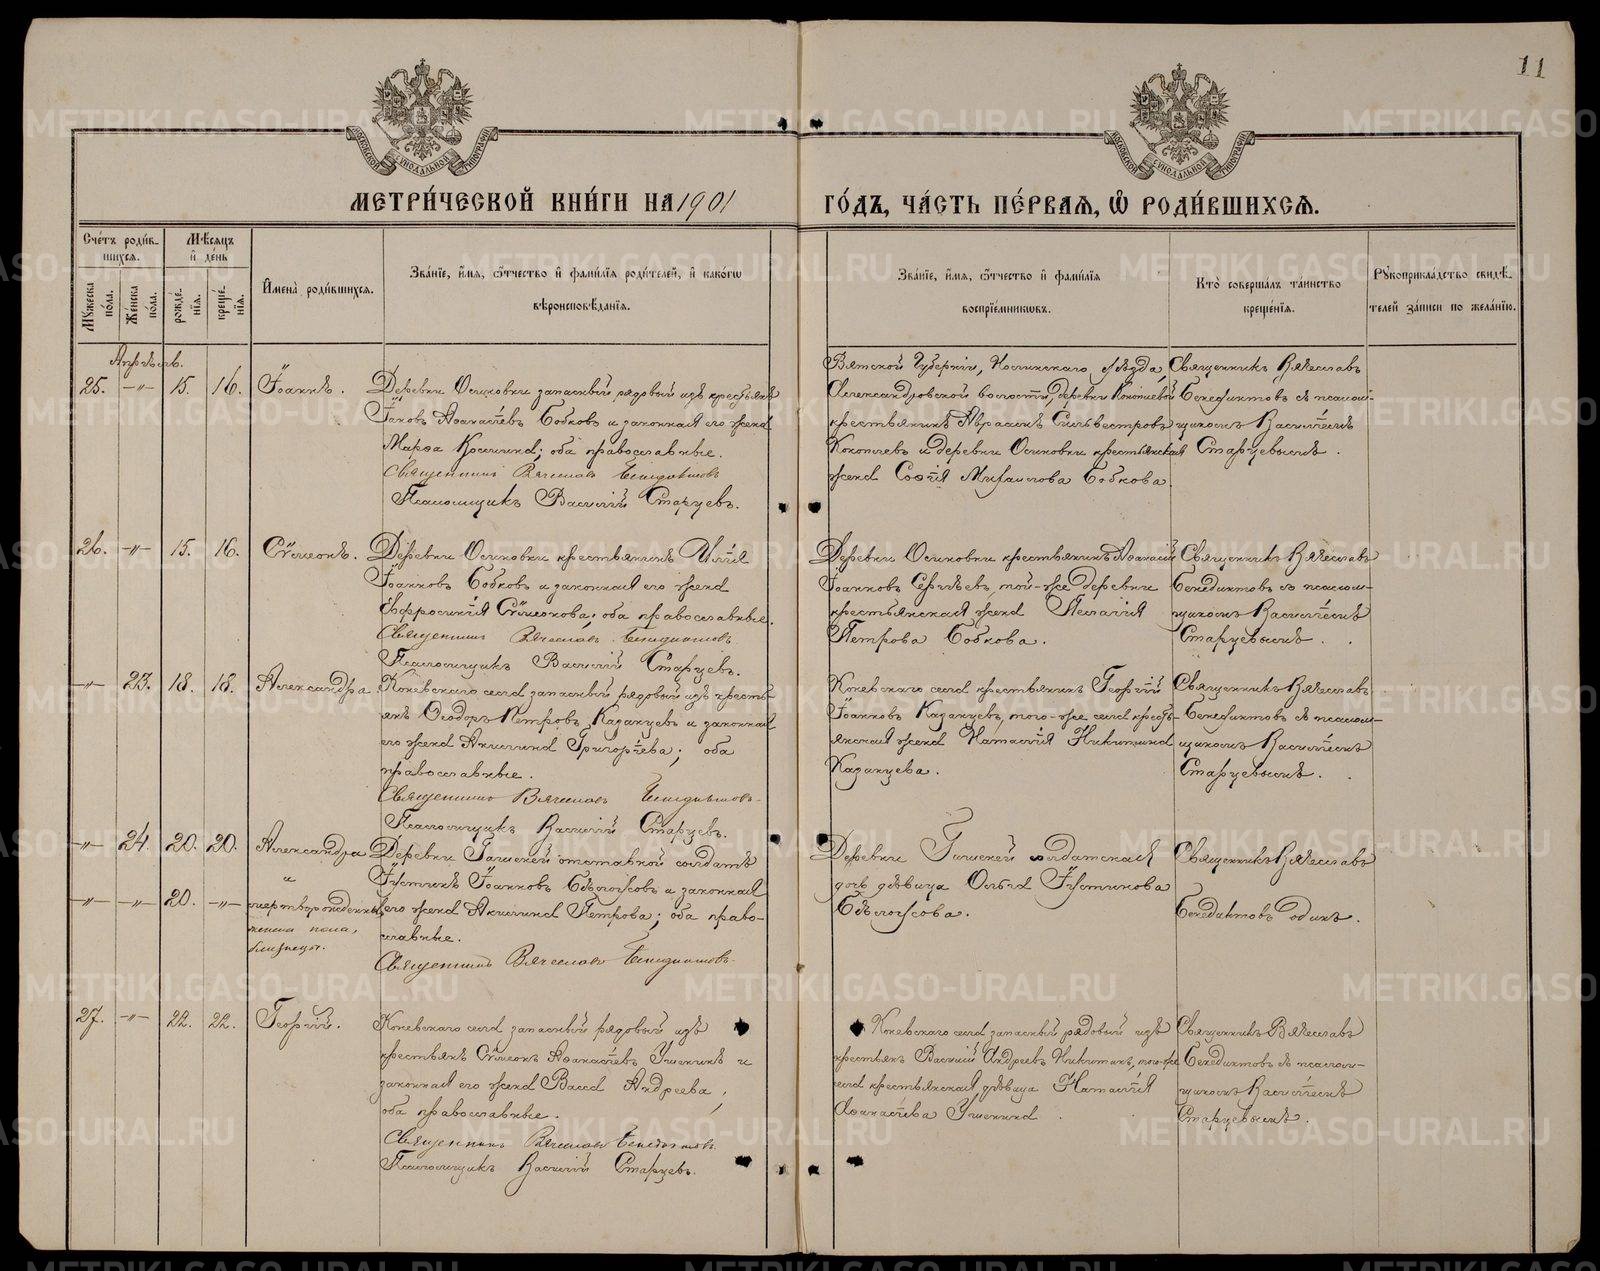 11
МОСКОВСКОЙ СѴНОДАЛЬНОЙ ТИПОГРАФІИ
МОСКОВСКОЙ СѴНОДАЛЬНОЙ ТИПОГРАФІИ
МЕТРИ́ЧЕСКОЙ КНИ́ГИ НА 1901 ГО́ДЪ, ЧА́СТЬ ПЕ́РВАѦ, Ѽ РОДИ́ВШИХСѦ.
Сче́тъ роди́в-
шихсѧ.
Мꙋ́жеска по́ла.
Же́нска по́ла.
Мѣ́сѧцъ и҆ де́нь
рожде́нїѧ.
креще́нїѧ.
И҆мена̀ роди́вшихсѧ.
Зва́нїе, и҆́мѧ, ѻ҆́тчество и҆ фами́лїѧ роди́телей, и҆ како́гѡ
вѣроисповѣ́данїѧ.
Зва́нїе, и҆́мѧ, ѻ҆́тчество и҆ фами́лїѧ
воспрїе́мникѡвъ.
Кто̀ соверша́лъ та́инство
креще́нїѧ.
Рꙋкоприкла́дство свидѣ́-
телей за́писи по жела́нїю.
Апрѣль.
25. —„— 15. 16. Іоаннъ.
Деревни Осиновки запасный рядовой изъ крестьянъ
Іаковъ Аѳанасіевъ Бобковъ и законная его жена
Марѳа Космина; оба православные.
Священникъ Вячеславъ Бенедиктовъ
Псаломщикъ Василій Старцевъ.
Вятской Губерніи, Нолинскаго уѣзда,
Александровской волости, деревни
крестьянинъ Авраамъ Сильвестровъ
и деревни Осиновки крестьянская
жена Софія Михаилова Бобкова.
Священникъ Вячеславъ
Бенедиктовъ съ псалом-
щикомъ Василіемъ
Старцевымъ.
26. —„— 15. 16. Сѵмеонъ.
Деревни Осиновки крестьянинъ Илія
Іоанновъ Бобковъ и законная его жена
Евфросинія Сѵмеонова; оба православные.
Священникъ Вячеславъ Бенедиктовъ
Псаломщикъ Василій Старцевъ.
Деревни Осиновки крестьянинъ Аѳанасій
Іоанновъ Сергѣевъ, той-же деревни
крестьянская жена Пелагія
Петрова Бобкова.
Священникъ Вячеславъ
Бенедиктовъ съ псалом-
щикомъ Василіемъ
Старцевымъ.
—„— 23. 18. 18. Александра
Коневскаго села запасный рядовой изъ кресть-
янъ Ѳеодоръ Петровъ Казанцевъ и законная
его жена Акилина Григоріева; оба
православные.
Священникъ Вячеславъ Бенедиктовъ
Псаломщикъ Василій Старцевъ.
Коневскаго села крестьянинъ Георгій
Іоанновъ Казанцевъ, того-же села кресть-
янская жена Наталія Никитина
Казанцева.
Священникъ Вячеславъ
Бенедиктовъ съ псалом-
щикомъ Василіемъ
Старцевымъ.
—„— 24. 20. 20. Александра
и
—„— —„— 20. —„— мертворожденный
женска пола,
близнецы.
Деревни Гашеней отставной солдатъ
Іустинъ Іоанновъ Бѣлоусовъ и законная
его жена Акилина Петрова; оба право-
славные.
Священникъ Вячеславъ Бенедиктовъ
Деревни Гашеней солдатская
дочь дѣвица Ольга Іустинова
Бѣлоусова.
Священникъ Вячеславъ
Бенедиктовъ одинъ.
27. —„— 22. 22. Георгій.
Коневскаго села запасный рядовой изъ
крестьянъ Сѵмеонъ Аѳанасіевъ Ушенинъ и
законная его жена Васса Андреева;
оба православные.
Священникъ Вячеславъ Бенедиктовъ.
Псаломщикъ Василій Старцевъ.
Коневскаго села запасный рядовой изъ
крестьянъ Василій Андреевъ Никитинъ, того-же
села крестьянская дѣвица Наталія
Аѳанасіева Ушенина
Священникъ Вячеславъ
Бенедиктовъ съ псалом-
щикомъ Василіемъ
Старцевымъ.
METRIKI.GASO-URAL.RU